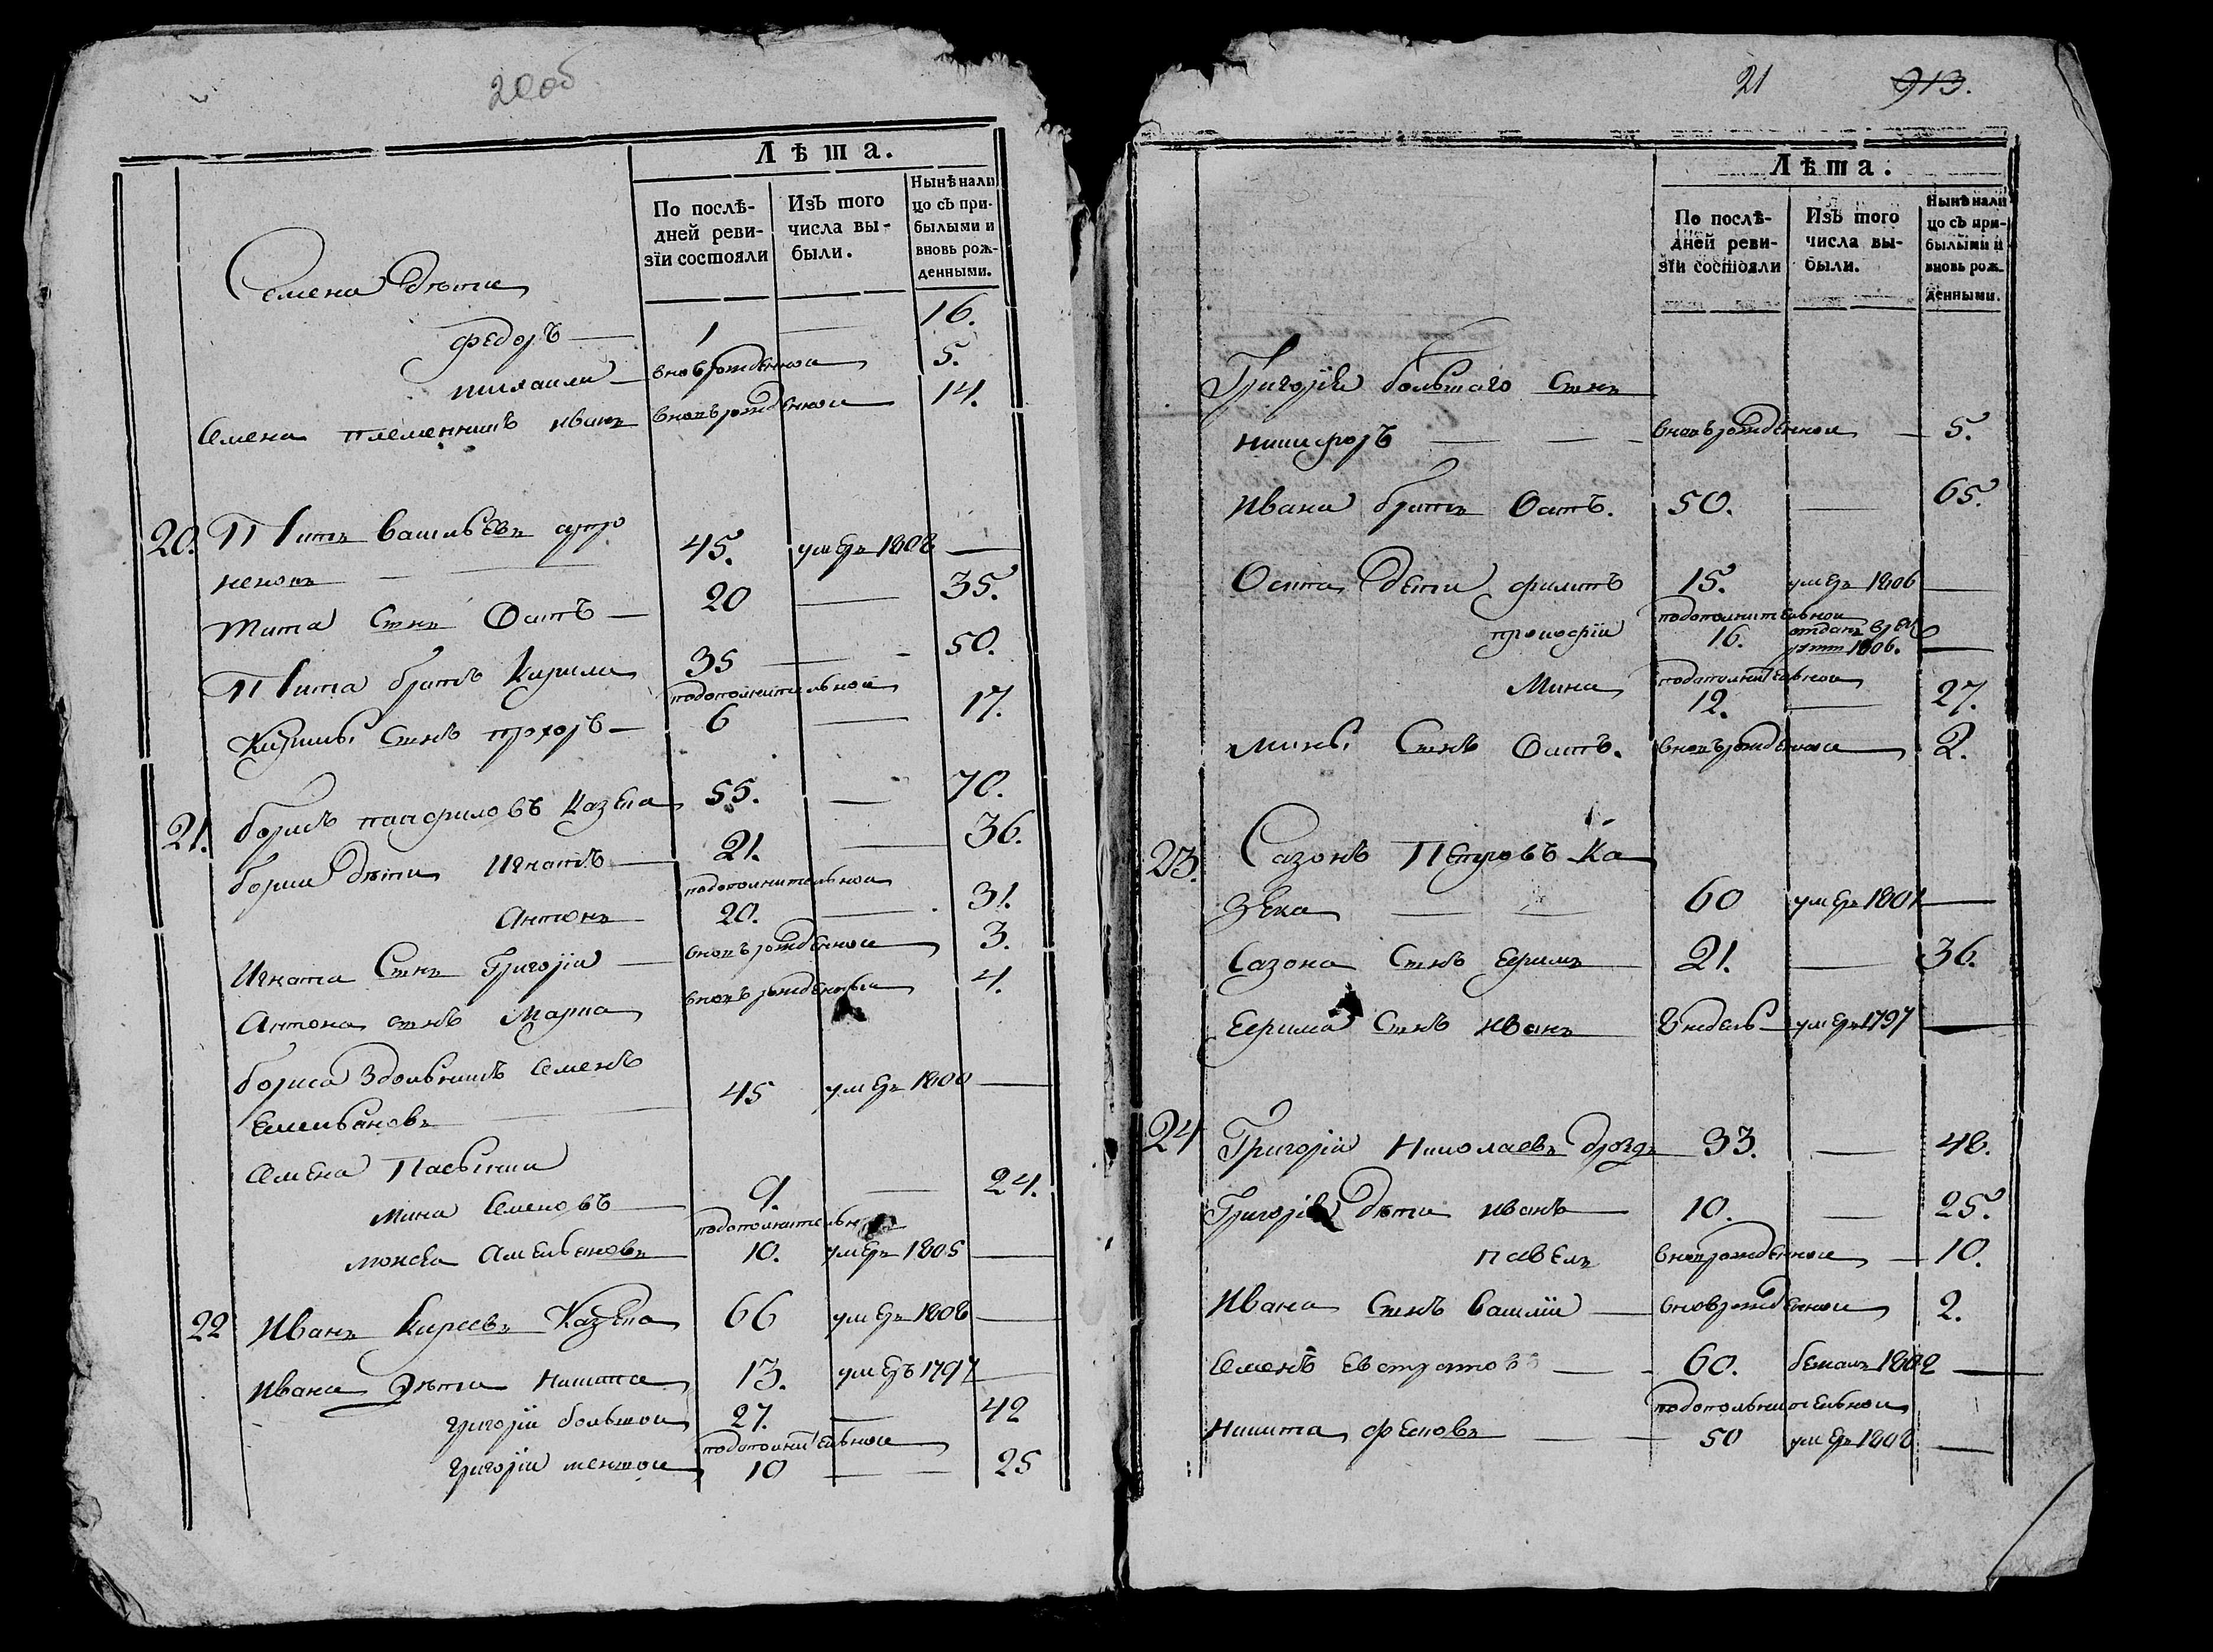 20об
Лѣта.
По послѣ-
дней реви-
зіи состояли
Изъ того
числа вы-
были.
Нынѣ нали
цо съ при-
былыми и
вновь рож-
денными.
Семена дѣти
Федоръ — 1 — 16.
михаила — вновьрожденнои 5.
Семена племенникъ иванъ вновьрожденнои 14.
20. Титъ васильевъ
45. умеръ 1808 —
Тита сынъ Осипъ — 20 — 35.
Тита братъ Кирила 35 — 50.
подополнительнои
Кирилы сынъ прохоръ — 6 — 17.
21. борисъ панфиловъ Казека 55. — 70.
бориса дѣти Игнатъ — 21. — 36.
подополнительнои
Антонъ 20. — 31.
Игната Сынъ Григоріи — вновьрожденнои 3.
Антона сынъ Марка вновьрожденныи 4.
бориса Здольникъ Семенъ
Емельяновъ 45 умеръ 1800 —
Семена Пасынки
мина Семеновъ 9. — 24.
подополнительн
Амельяновъ 10. умеръ 1805 —
22 Иванъ Киреевъ Казека 66 умеръ 1808 —
Ивана дѣти Никита 13. умеръ 1797 —
григоріи большои 27. — 42
подополнительнои
григоріи меншои 10 — 25
21 913.
Лѣта.
По послѣ-
дней реви-
зіи состояли
Изъ того
числа вы-
были.
Нынѣ нали
цо съ при-
былыми и
вновь рож-
денными.
Григорія большаго Сынъ
никифоръ — — вновьрожденнои — 5.
Ивана братъ Осипъ. 50. — 65.
Осипа дети филипъ 15. умеръ 1806 —
подополнительнои
прокофіи 16. отданъ в рек
1806. —
подополнительнои
Мина 12. — 27.
мины Сынъ Осипъ. вновьрожденнои 2.
23. Сазонъ Петровъ Ка
зека — — 60 умеръ 1801 —
Сазона Сынъ Ефимъ 21. — 36.
Ефима Сынъ иванъ недель умеръ 1797 —
24 Григоріи Николаевъ дроздъ 33. — 48.
Григорія дѣти иванъ — 10. — 25.
павелъ вновьрожденнои — 10.
Ивана Сынъ василіи — вновьрожденнои 2.
Семенъ Евстратовъ — 60. бежалъ 1802 —
подополнительнои
Никита фекловъ — 50 умеръ 1808 —